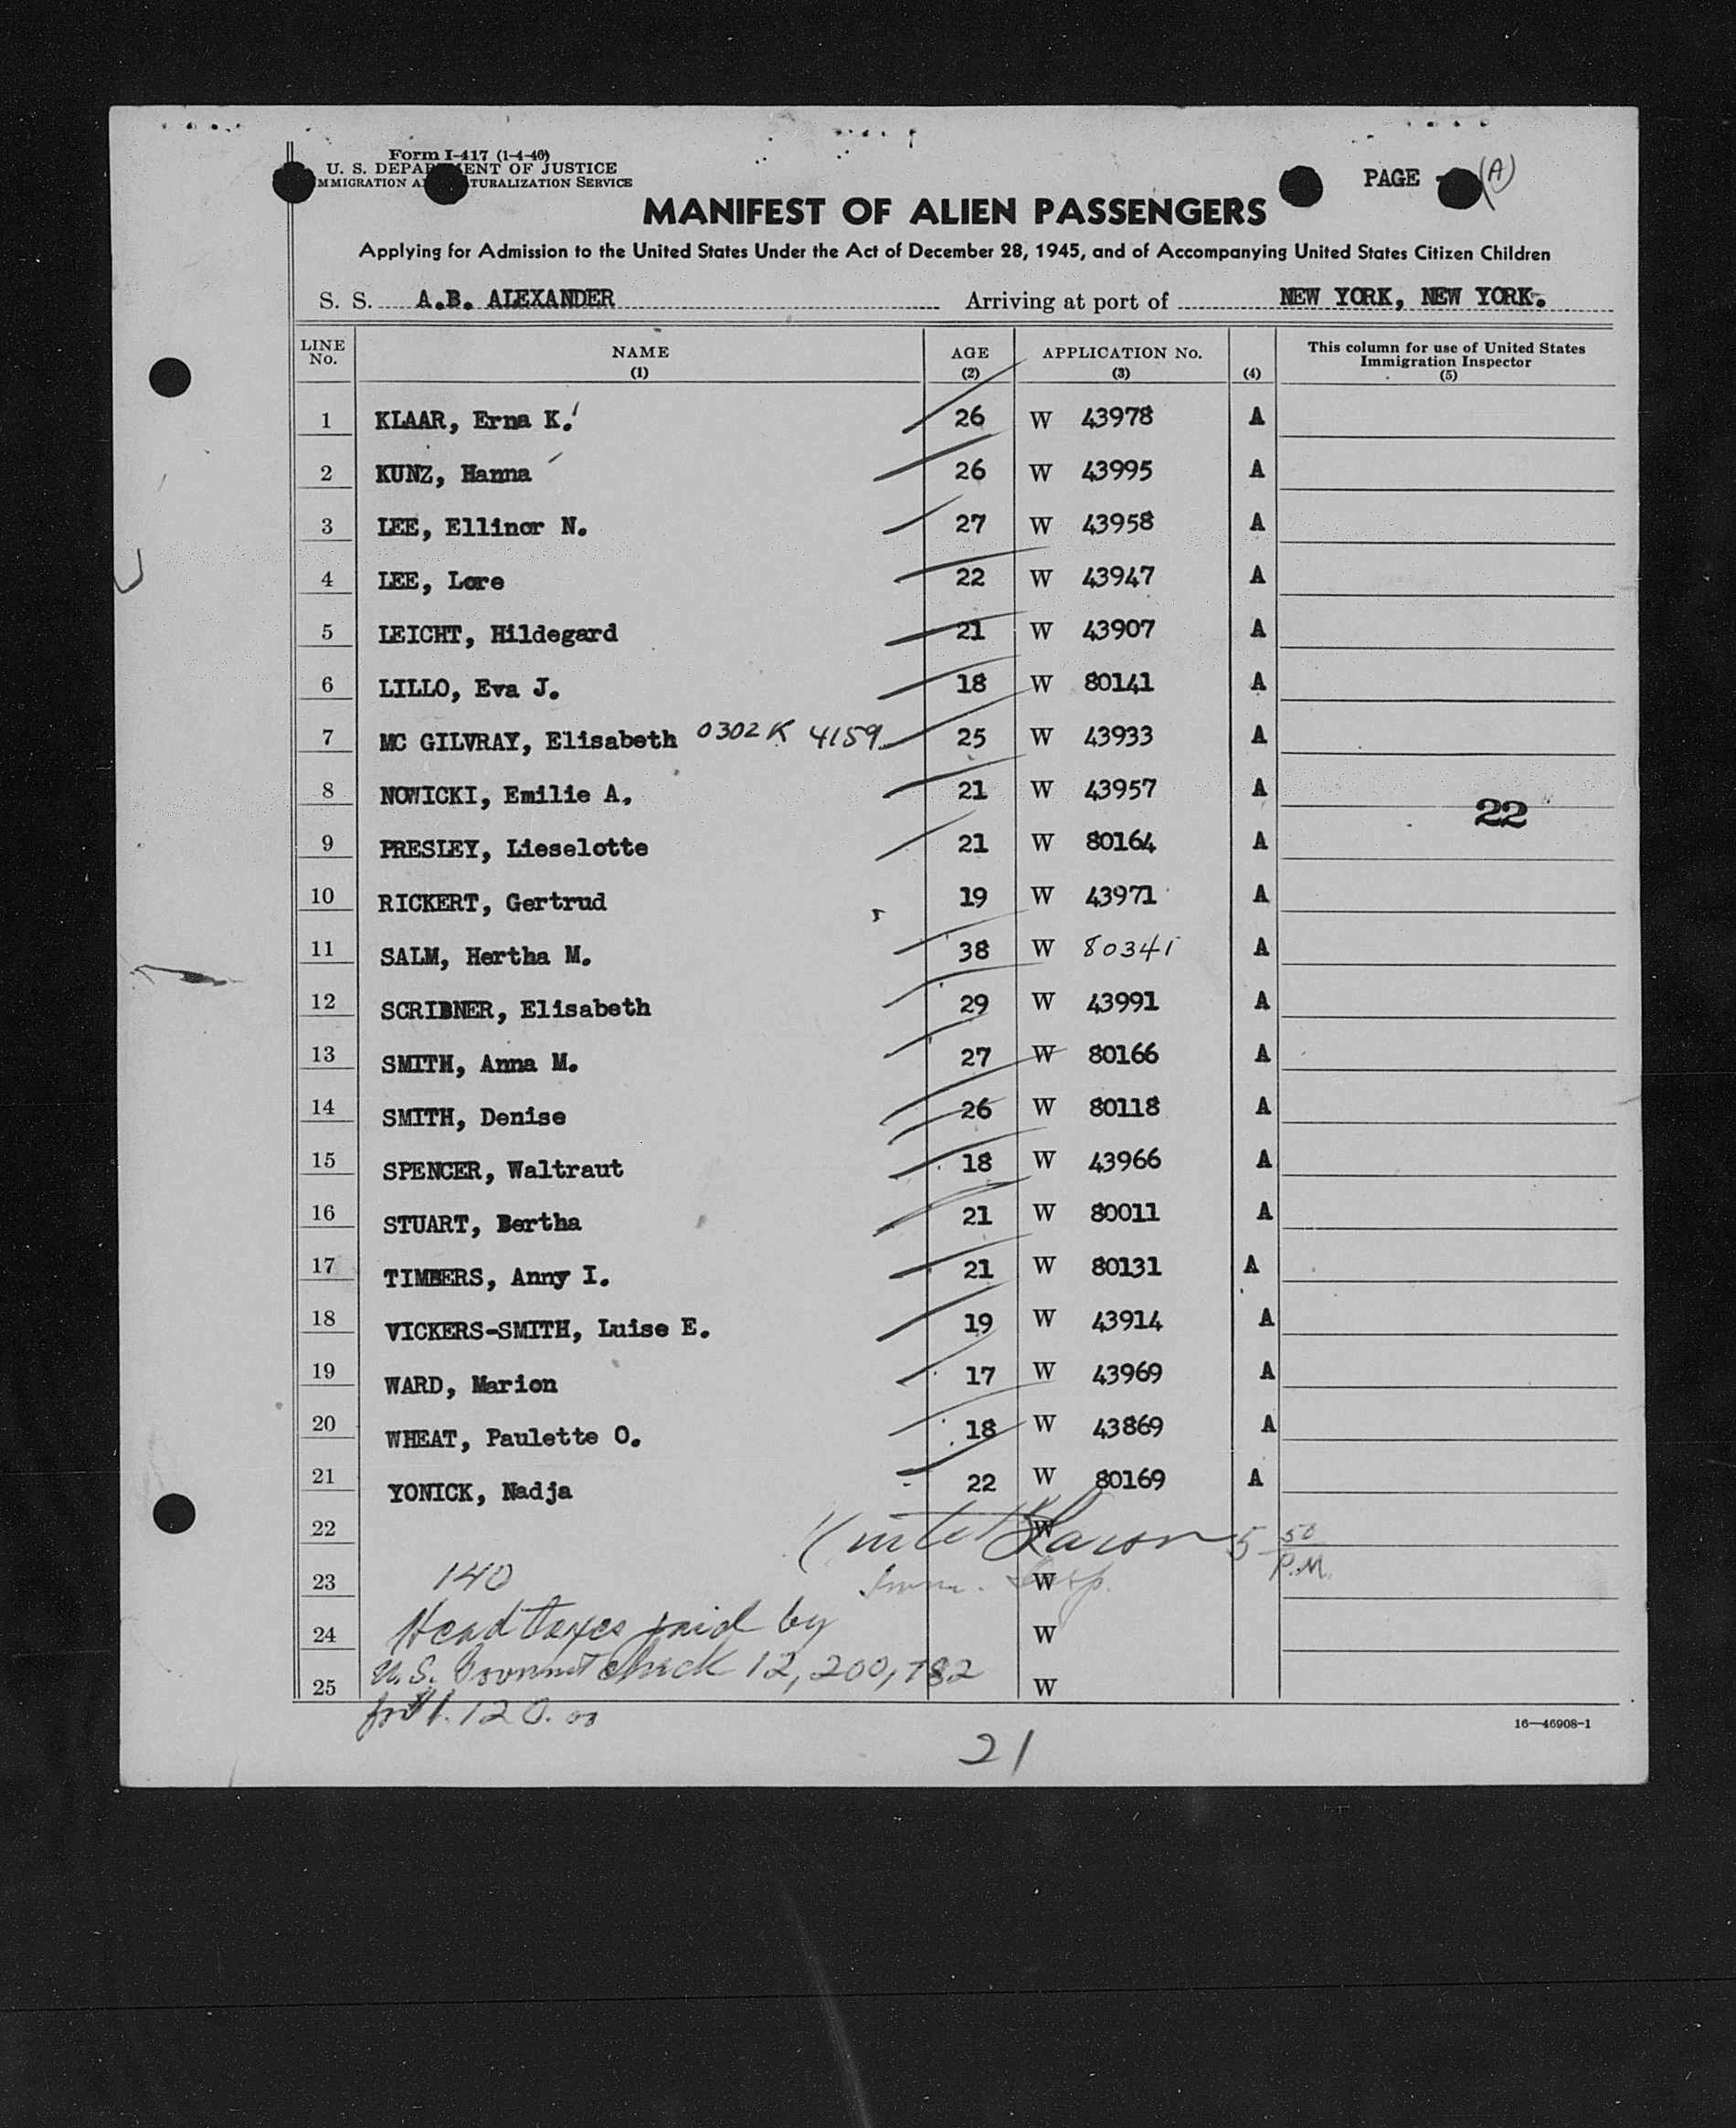 Form I-417 (1-4-46)
U. S. DEPARTMENT OF JUSTICE
IMMIGRATION AND NATURALIZATION SERVICE
PAGE (A)
MANIFEST OF ALIEN PASSENGERS
Applying for Admission to the United States Under the Act of December 28, 1945, and of Accompanying United States Citizen Children
S. S. A.B. ALEXANDER Arriving at port of NEW YORK, NEW YORK.
LINE No. NAME (1) AGE (2) APPLICATION No. (3) (4) This column for use of United States Immigration Inspector (5)
1 KLAAR, Erna K. 26 W 43978 A
2 KUNZ, Hanna 26 W 43995 A
3 LEE, Ellinor N. 27 W 43958 A
4 LEE, Lore 22 W 43947 A
5 LEICHT, Hildegard 21 W 43907 A
6 LILLO, Eva J. 18 W 80141 A
7 MC GILVRAY, Elisabeth 0302 K 4159 25 W 43933 A
8 NOWICKI, Emilie A. 21 W 43957 A
22
9 PRESLEY, Lieselotte 21 W 80164 A
10 RICKERT, Gertrud 19 W 43971 A
11 SALM, Hertha M. 38 W 80341 A
12 SCRIBNER, Elisabeth 29 W 43991 A
13 SMITH, Anna M. 27 W 80166 A
14 SMITH, Denise 26 W 80118 A
15 SPENCER, Waltraut 18 W 43966 A
16 STUART, Bertha 21 W 80011 A
17 TIMBERS, Anny I. 21 W 80131 A
18 VICKERS-SMITH, Luise E. 19 W 43914 A
19 WARD, Marion 17 W 43969 A
20 WHEAT, Paulette O. 18 W 43869 A
21 YONICK, Nadja 22 W 80169 A
22 W 5 50 P.M.
23 140 Imm. Insp. W
24 Head taxes paid by W
25 U.S. check 12,200,782 W
for $1.120.00
16—46908-1
21